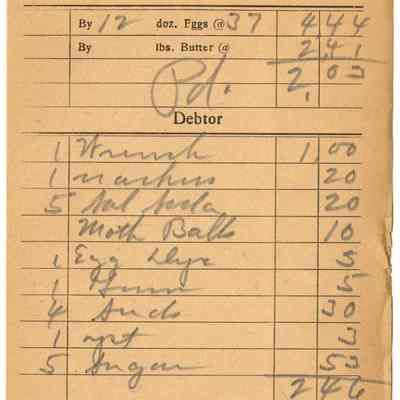 By 12 doz. Eggs @ 37 4 44
By lbs. Butter @ 2 41
Pd. 2 03
Debtor
1 Wrench 1 00
1 20
5 Sal Soda 20
Moth Balls 10
1 Egg Dye 5
1 5
4 Suds 30
1 3
5 Sugar 53
2 46